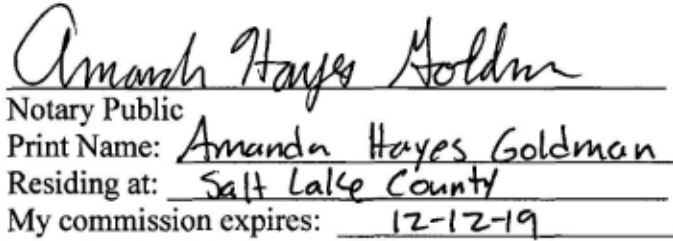 Amanda Hayes Goldman
Notary Public
Print Name: Amanda Hayes Goldman
Residing at: Salt Lake County
My commission expires: 12-12-19